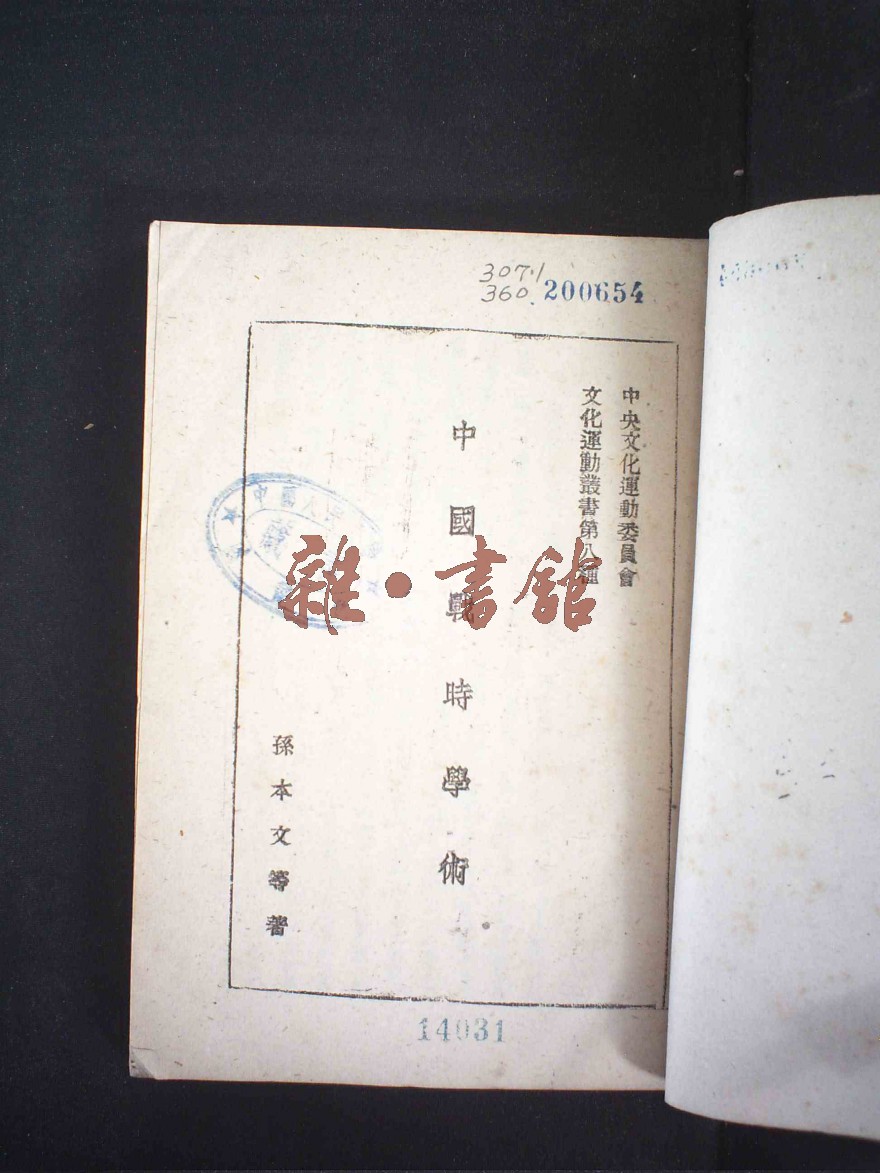 307.1
360
200654
中央文化運動委員會
文化運動叢書第八種
中國戰時學術
孫本文等著
雜·書館
14031